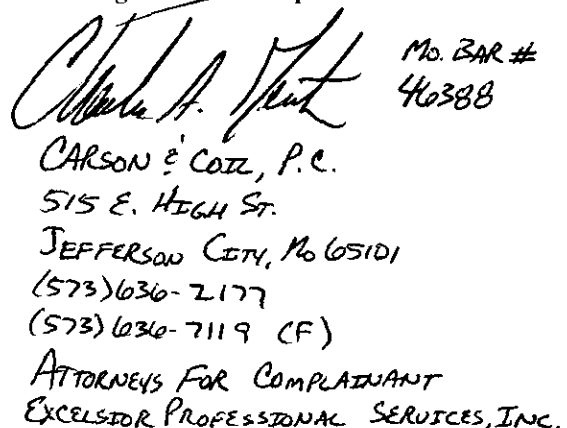 Mo. BAR #
46388
CARSON & COIL, P.C.
515 E. HIGH ST.
JEFFERSON CITY, Mo 65101
(573)636-2177
(573)636-7119 (F)
ATTORNEYS FOR COMPLAINANT
EXCELSIOR PROFESSIONAL SERVICES, INC.